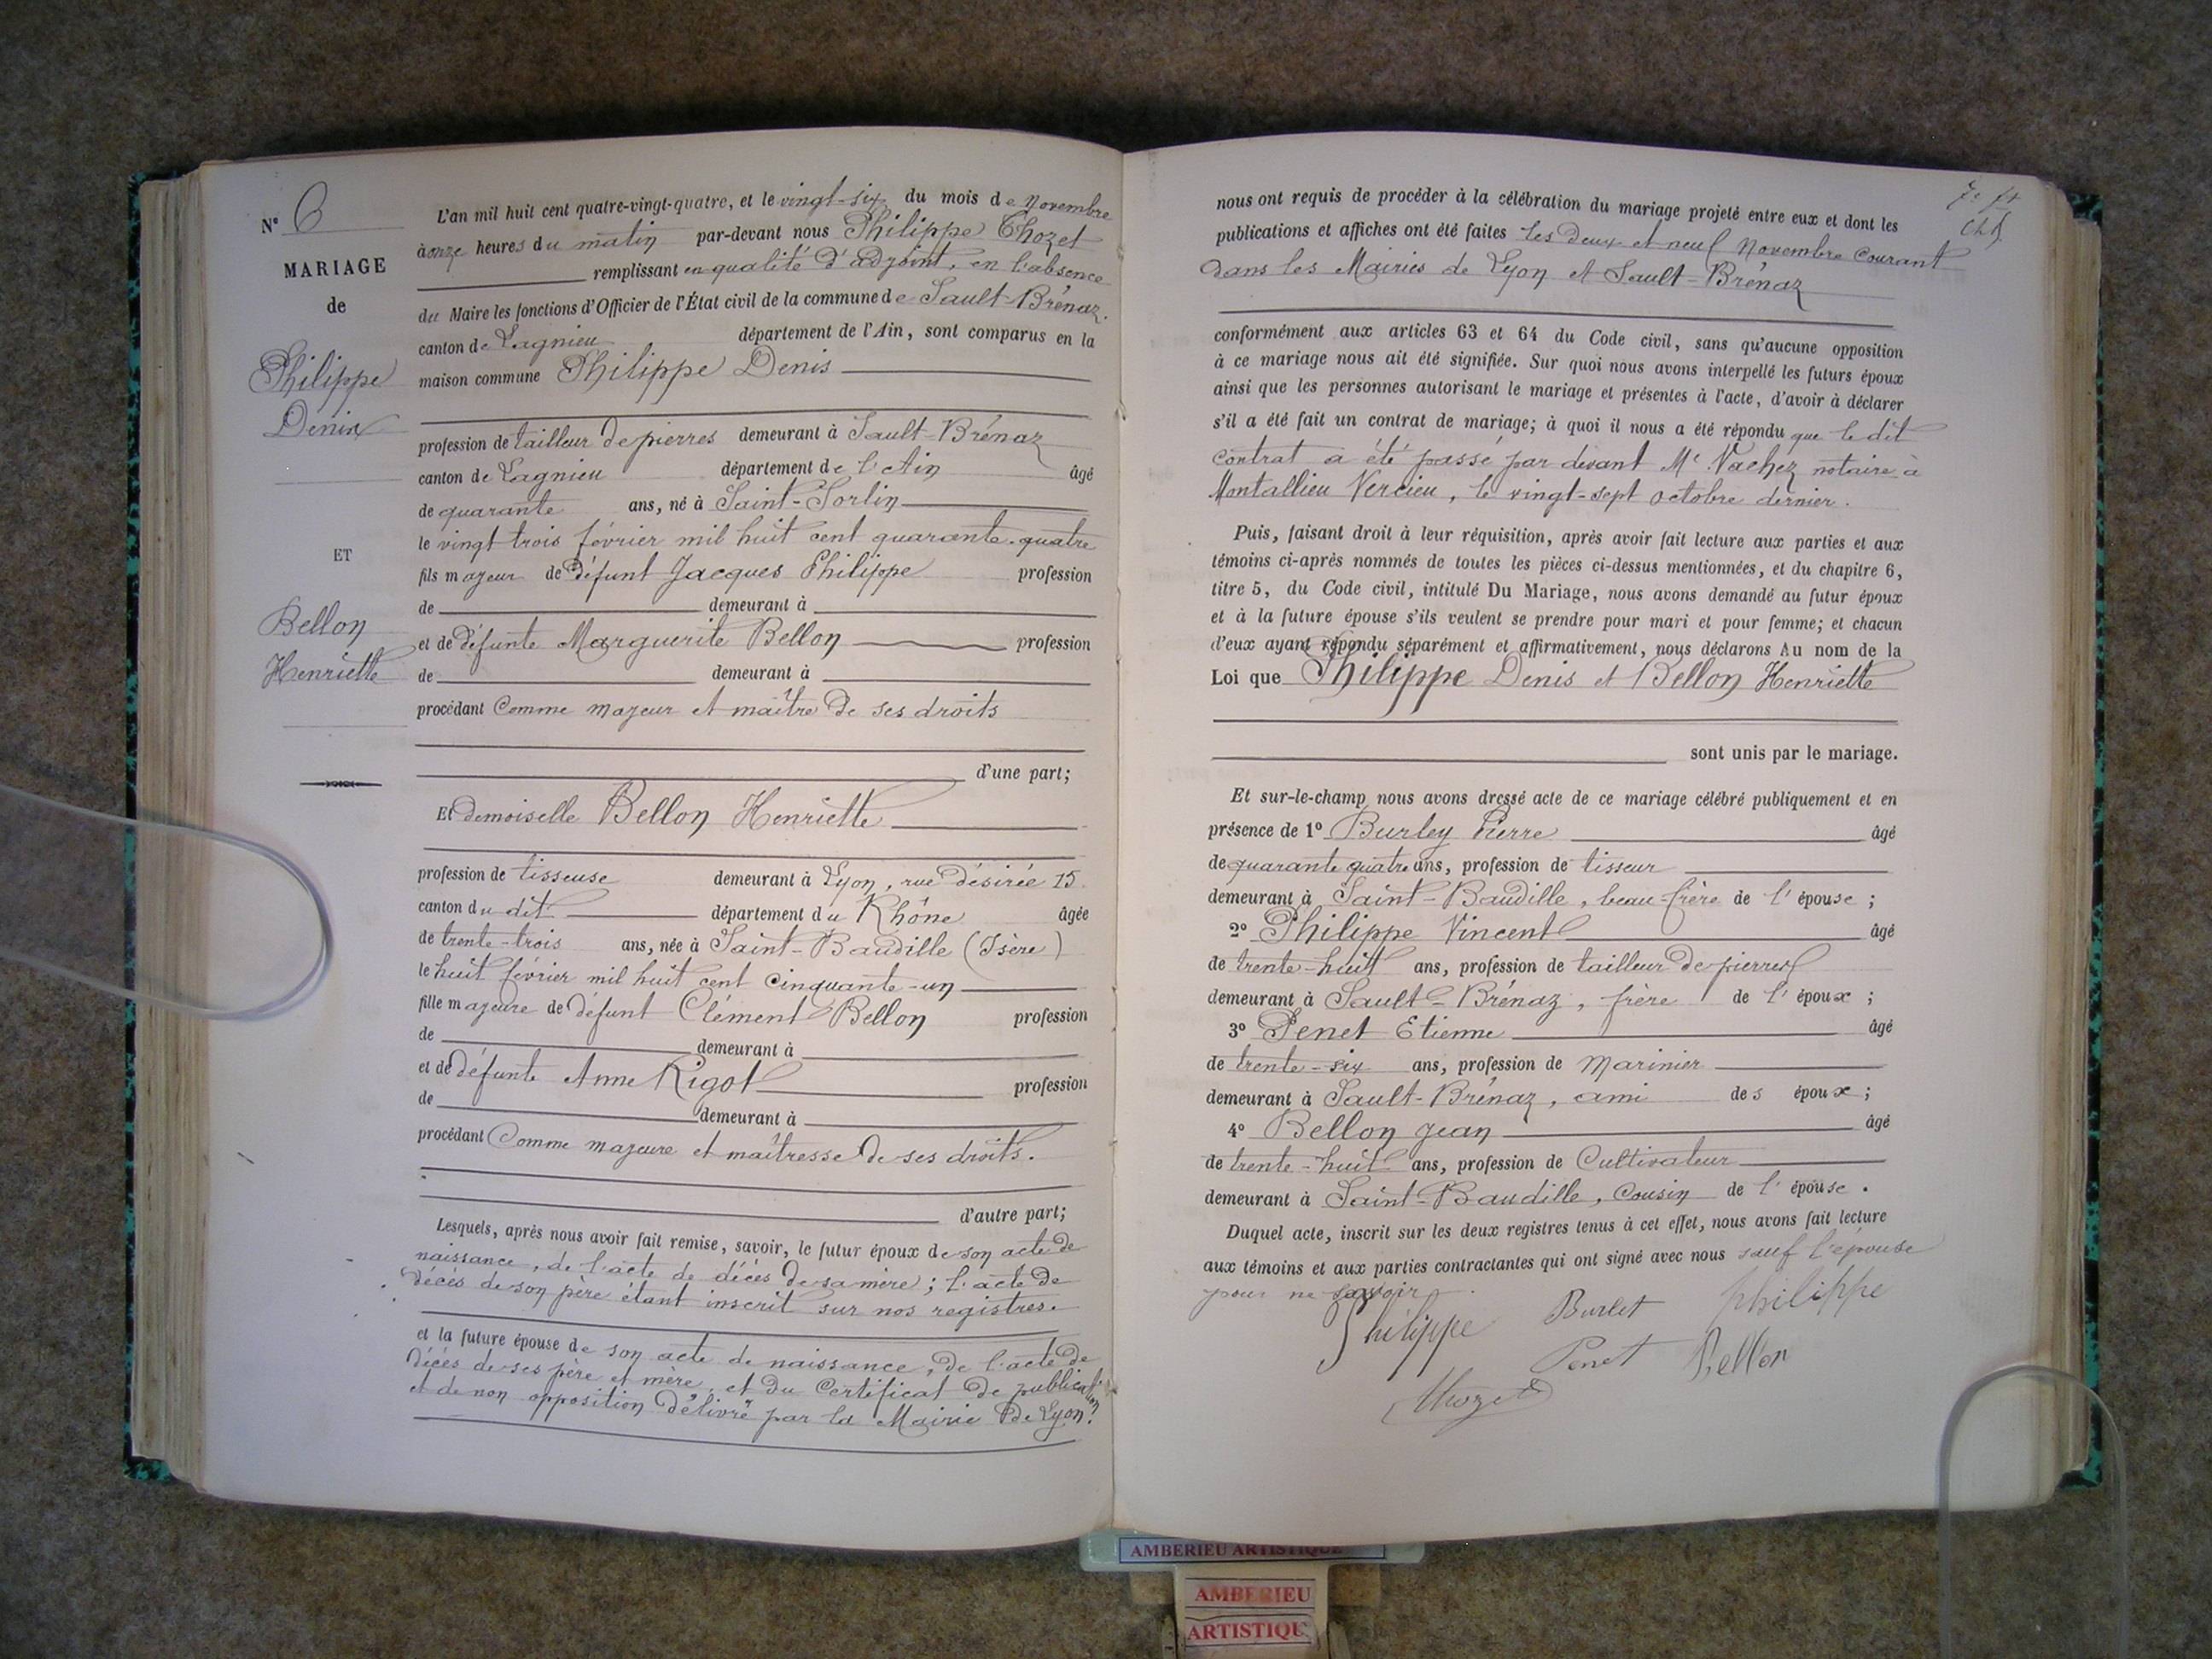 N° 6
MARIAGE
de
Philippe
Denis
ET
Bellon
Henriette
L'an mil huit cent quatre-vingt-quatre, et le vingt-six du mois de Novembre
à onze heures du matin par-devant nous Philippe Chozet
remplissant en qualité d'adjoint, en l'absence
du Maire les fonctions d'Officier de l'État civil de la commune de Sault-Brénaz.
canton de Lagnieu département de l'Ain, sont comparus en la
maison commune Philippe Denis
profession de tailleur de pierres demeurant à Sault-Brénaz
canton de Lagnieu département de l'Ain âgé
de quarante ans, né à Saint-Sorlin
le vingt trois février mil huit cent quarante-quatre
fils majeur de défunt Jacques Philippe profession
de demeurant à
et de défunte Marguerite Bellon profession
de demeurant à
procédant Comme majeur et maître de ses droits
d'une part;
Et demoiselle Bellon Henriette
profession de tisseuse demeurant à Lyon, rue désirée 15
canton du dit département du Rhône âgée
de trente-trois ans, née à Saint-Baudille (Isère)
le huit février mil huit cent cinquante-un
fille majeure de défunt Clément Bellon profession
de demeurant à
et de défunte Anne Rigot profession
de demeurant à
procédant Comme majeure et maîtresse de ses droits.
d'autre part;
Lesquels, après nous avoir fait remise, savoir, le futur époux de son acte de
naissance, de l'acte de décés de sa mère; l'acte de
décés de son père étant inscrit sur nos registres.
et la future épouse de son acte de naissance, de l'acte de
décés de ses père et mère, et du Certificat de publication
et de non opposition délivré par la Mairie de Lyon.
nous ont requis de procéder à la célébration du mariage projeté entre eux et dont les
publications et affiches ont été faites les deux et neuf Novembre Courant
dans les Mairies de Lyon et Sault-Brénaz
conformément aux articles 63 et 64 du Code civil, sans qu'aucune opposition
à ce mariage nous ait été signifiée. Sur quoi nous avons interpellé les futurs époux
ainsi que les personnes autorisant le mariage et présentes à l'acte, d'avoir à déclarer
s'il a été fait un contrat de mariage; à quoi il nous a été répondu que le dit
contrat a été passé par devant Me Vachez notaire à
Montallieu Vercieu, le vingt-sept octobre dernier.
Puis, faisant droit à leur réquisition, après avoir fait lecture aux parties et aux
témoins ci-après nommés de toutes les pièces ci-dessus mentionnées, et du chapitre 6,
titre 5, du Code civil, intitulé Du Mariage, nous avons demandé au futur époux
et à la future épouse s'ils veulent se prendre pour mari et pour femme; et chacun
d'eux ayant répondu séparément et affirmativement, nous déclarons Au nom de la
Loi que Philippe Denis et Bellon Henriette
sont unis par le mariage.
Et sur-le-champ nous avons dressé acte de ce mariage célébré publiquement et en
présence de 1° Burley Pierre âgé
de quarante quatre ans, profession de tisseur
demeurant à Saint-Baudille, beau-frère de l'épouse;
2° Philippe Vincent âgé
de trente-huit ans, profession de tailleur de pierres
demeurant à Sault-Brénaz, frère de l'époux;
3° Penet Etienne âgé
de trente-six ans, profession de Marinier
demeurant à Sault-Brénaz, ami des époux;
4° Bellon Jean âgé
de trente-huit ans, profession de Cultivateur
demeurant à Saint-Baudille, Cousin de l'épouse.
Duquel acte, inscrit sur les deux registres tenus à cet effet, nous avons fait lecture
aux témoins et aux parties contractantes qui ont signé avec nous sauf l'épouse
pour ne savoir.
Philippe Burlet philippe
Penet Bellon
Chozet
AMBERIEU ARTISTIQUE
AMBERIEU
ARTISTIQU